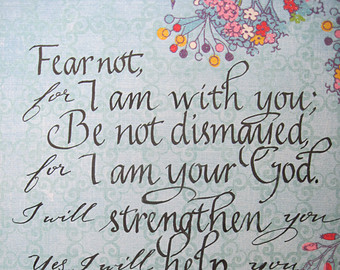 Fear not,
for I am with you;
Be not dismayed,
for I am your God.
I will strengthen you
Yes I will help you